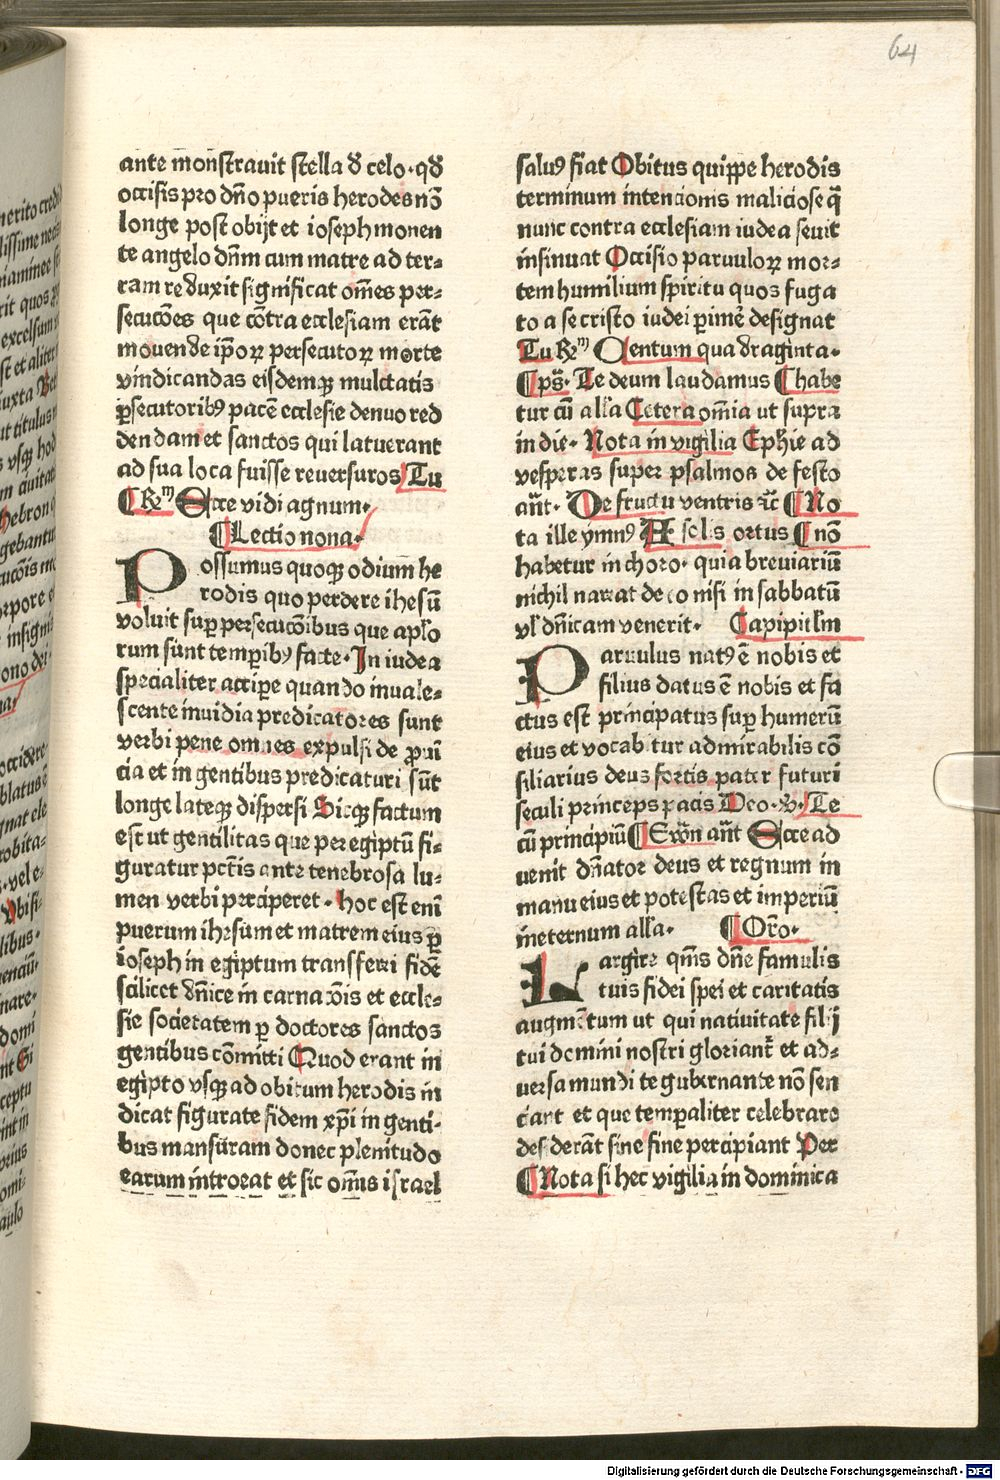 64
ante monstravit stella đ celo· qđ
occisis pro dño pueris herodes nō
longe post obijt et ioseph monen
te angelo dñm cum matre ad ter⸗
ram reduxit significat om̃es per⸗
secucōes que cōtra ecclesiam erāt
movende ip̄oꝝ persecutoꝝ morte
vindicandas eisdemqꝫ mulctatis
ꝑsecutoribꝰ pacē ecclesie denuo red
dendam et sanctos qui latuerant
ad sua loca fuisse reuersuros Tu
¶ Rm̄ Ecce vidi agnum·
¶ Lectio nona·
Possumus quoqꝫ odium he
rodis quo perdere ihesū
voluit suꝑ persecucōibus que aplo
rum sunt temꝑibꝰ facte· In iudea
specialiter accipe quando inuale⸗
scente inuidia predicatores sunt
verbi pene omnes expulsi de ꝓui
cia et in gentibus predicaturi sūt
longe lateqꝫ dispersi Sicqꝫ factum
est ut gentilitas que per egiptū fi⸗
guratur pctīs ante tenebrosa lu⸗
men verbi perciperet· hoc est eni
puerum ihesum et matrem eius ꝑ
ioseph in egiptum transferri fidē
scilicet dn̄ice in carnacōis et eccle⸗
sie societatem ꝑ doctores sanctos
gentibus cōmitti Quod erant in
egipto vsqꝫ ad obitum herodis in
dicat figurate fidem xp̄i in genti⸗
bus mansuram donec plenitudo
earum introeat et sic om̄is israel
salus fiat Obitus quippe herodis
terminum intencionis maliciose q̄
nunc contra ecclesiam iudea seuit
insinuat Occisio paruuloꝝ mor⸗
tem humilium spiritu quos fuga
to a se cristo iudei ꝑimē designat
Tu Rm̄ Centum quadraginta·
¶ ps· Te deum laudamus ¶ habe
tur cū alla Cetera om̄ia ut supra
in die· Nota in vigilia Ephie ad
vesperas super psalmos de festo
an̄t· De fructu ventris ꝛc̄ ¶ No
ta ille ymnꝰ A solis ortus ¶ nō
habetur in choro· quia breviariū
nichil narrat de eo nisi in sabbatū
vl' dn̄icam venerit· Capipitl'm
Paruulus natꝰ ē nobis et
filius datus ē nobis et fa
ctus est principatus suꝑ humerū
eius et vocabitur admirabilis cō
siliarius deus fortis pater futuri
seculi princeps pacis Deo· V· Te
cū principiū ¶ Sr̄ on̄ an̄t Ecce ad
uenit dn̄ator deus et regnum in
manu eius et potestas et imperiū
in eternum alla· ¶ Or̄o·
Largire qm̄s dn̄e famulis
tuis fidei spei et caritatis
augmētum ut qui nativitate filij
tui domini nostri gloriant̄ et ad⸗
uersa mundi te gubernante nō sen
ciant et que temꝑaliter celebrare
desiderāt sine fine percipiant Per
¶ Nota si hec vigilia in dominica
Digitalisierung gefördert durch die Deutsche Forschungsgemeinschaft · DFG